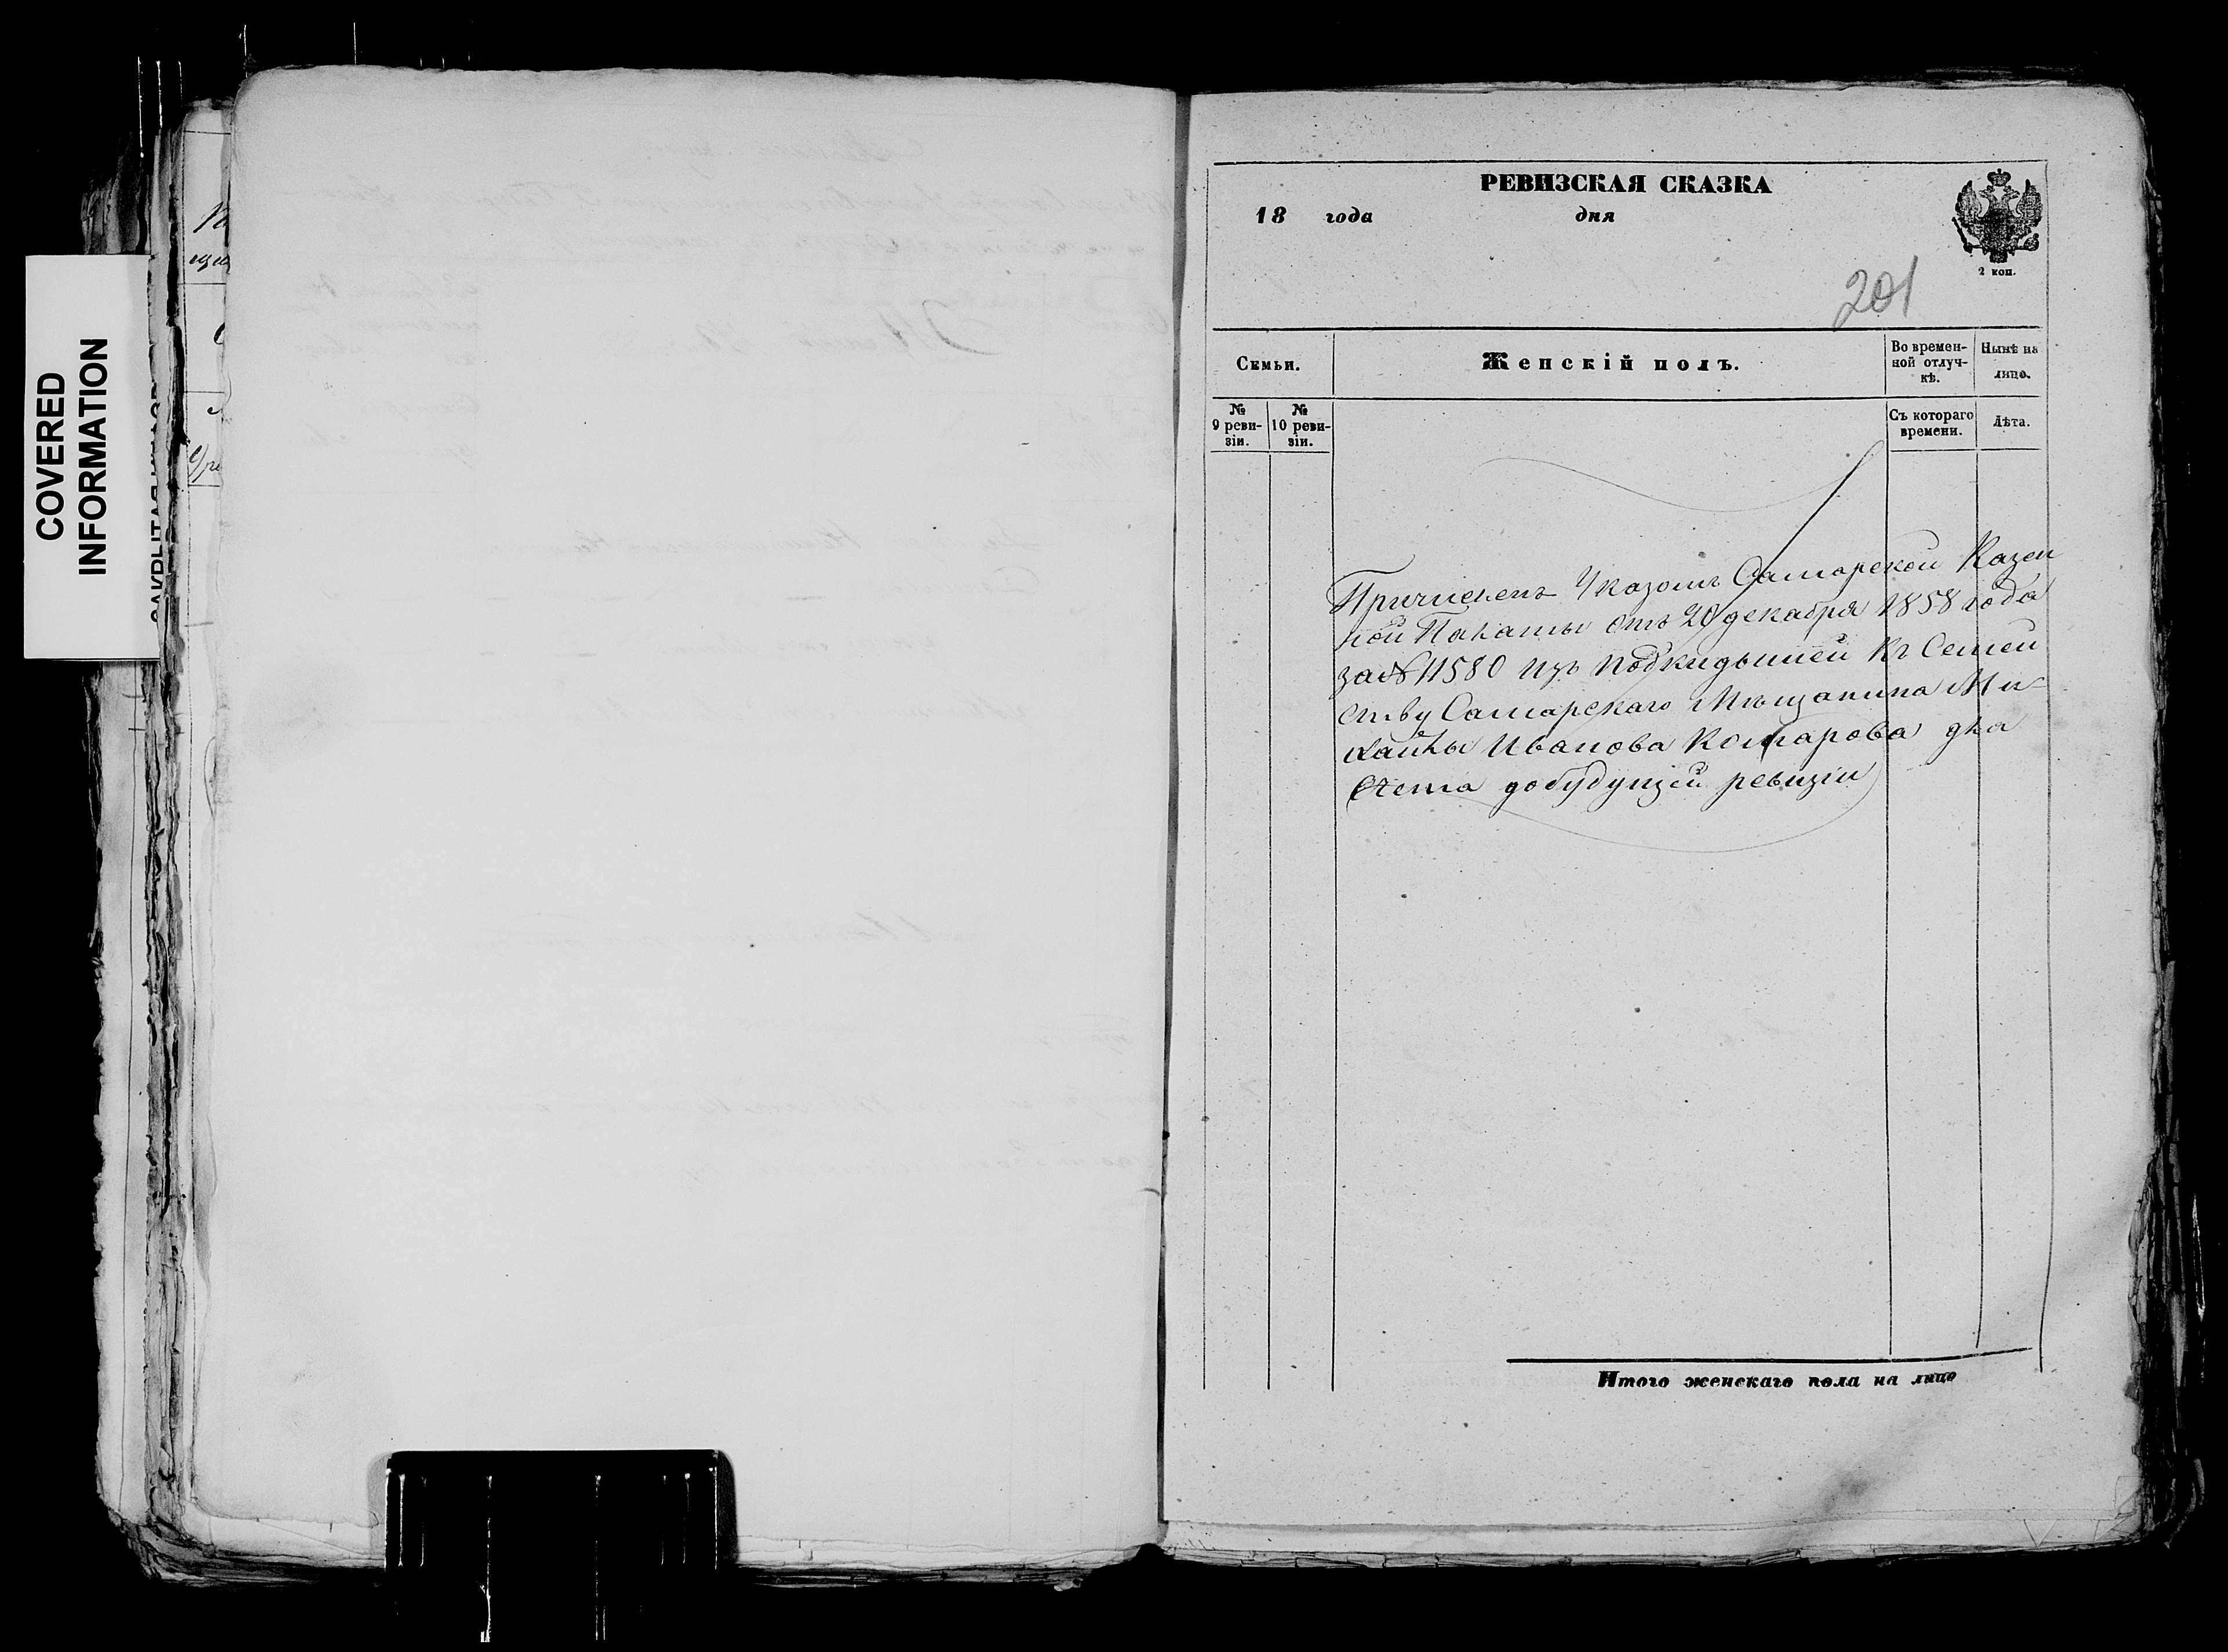 COVERED
INFORMATION
РЕВИЗСКАЯ СКАЗКА
18 года дня
2 коп.
201
Семьи.
Женскій полъ.
Во времен-
ной отлуч-
кѣ.
Нынѣ на
лицо.
№
9 реви-
зіи.
№
10 реви-
зіи.
Съ котораго
времени.
Лѣта.
Причисленъ Указомъ Самарской Казен
ной Палаты отъ 20 декабря 1858 года
за № 11580 изъ подкидышей къ Семей
ству Самарскаго Мѣщанина Ми-
хайлы Иванова Комарова для
счета добудущей ревизіи
Итого женскаго пола на лицо